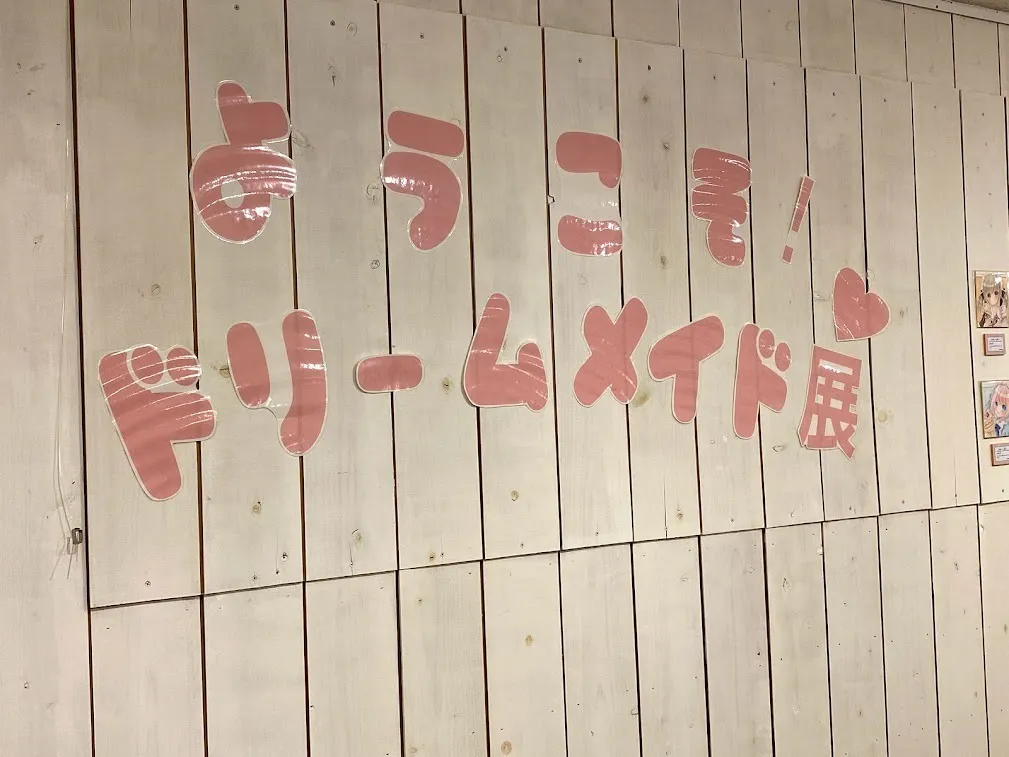 ようこそ!
ドリームメイド展♥